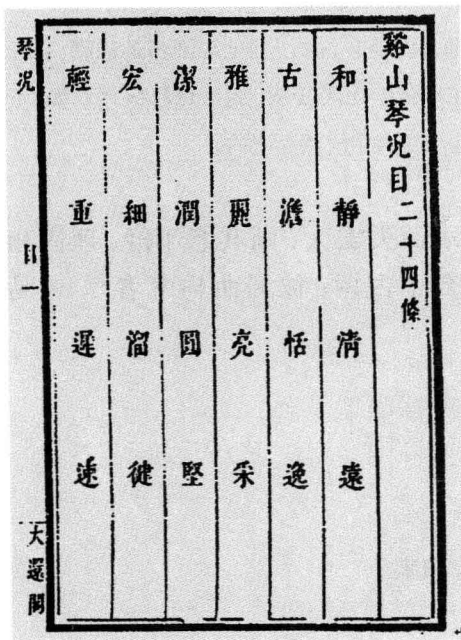 谿山琴況目二十四條
和 靜 清 遠
古 澹 恬 逸
雅 麗 亮 采
潔 潤 圓 堅
宏 細 溜 健
輕 重 遲 速
琴況 目一 大還閣